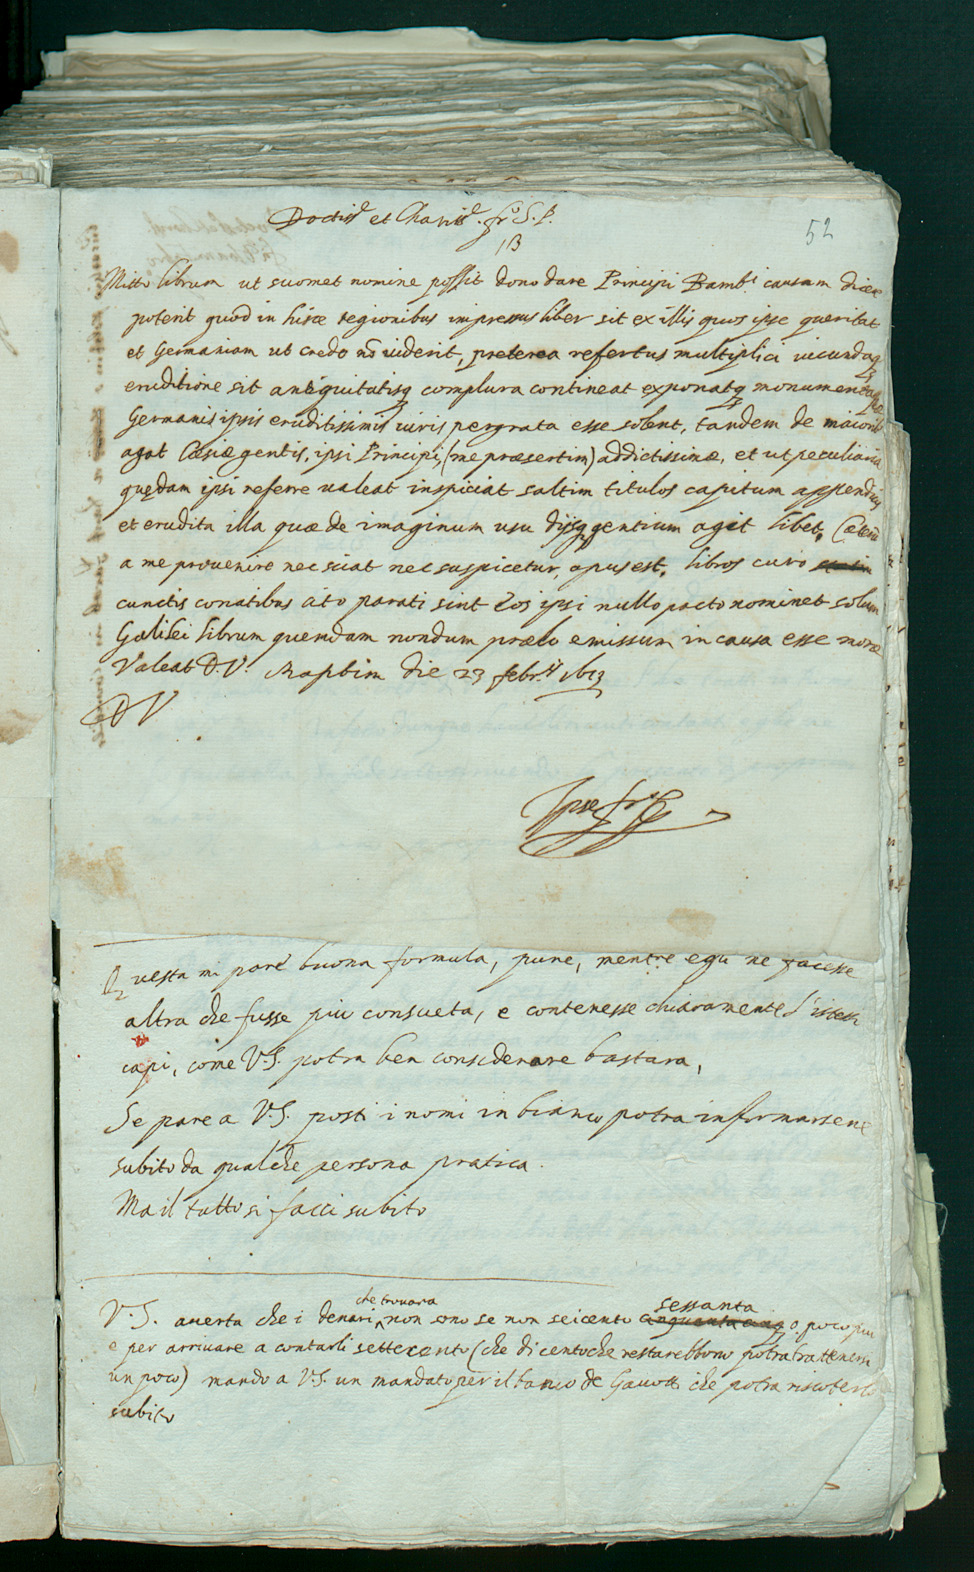 52
Doctiss.e et Chariss.e fr. S. P.
Mitto librum ut suomet nomine possit dono dare Principi Bamb.i causam dicere
poterit quod in hisce regionibus impressus liber sit ex illis quos ipse queritat
et Germaniam ut credo nō uiderit, preterea refertus multiplici iucundaq
eruditione sit antiquitatisq complura contineat exponatq monumenta quę
Germanis ipsis eruditissimis uiris pergrata esse solent, tandem de maiorib
agat Cæsiæ gentis, ipsi Principi, (me præsertim) addictissimæ, et ut peculiaria
quędam ipsi referre ualeat inspiciat saltim titulos capitum appendicis
et erudita illa quæ de imaginum usu dijsq gentium agit libet.
a me prouenire nec sciat nec suspicetur, opus est. libros curo
cunctis conatibus cito parati sint Eos ipsi nullo pacto nominet solum
Galilei librum quendam nondum prælo emissum in causa esse moræ
Valeat D.V. Raptim die 23 febr.ii 1613
DV
Questa mi pare buona formula, pure, mentre egli ne facesse
altra che fusse piu consueta, e contenesse chiaramente l'istessi
capi, come V.S. potra ben considerare bastara,
Se pare a V.S. posti i nomi in bianco potra informarsene
subito da qualche persona pratica.
Ma il tutto si facci subito
V.S. auerta che i denari che trouara non sono se non seicento sessanta o poco piu
e per arriuare a contarli settecento (che di cento che restarebbono potra trattenersi
un poco) mando a V.S. un mandato per il banco de Gauotti che potra riscoterlo
subito